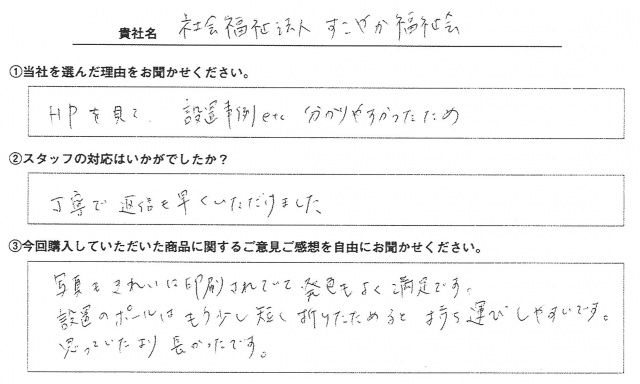 貴社名 社会福祉法人 すこやか福祉会
①当社を選んだ理由をお聞かせください。
HPを見て、設置事例etc 分かりやすかったため
②スタッフの対応はいかがでしたか？
丁寧で返信も早くいただけました
③今回購入していただいた商品に関するご意見ご感想を自由にお聞かせください。
写真もきれいに印刷されていて発色もよく満足です。
設置のポールはもう少し短く折りたためると持ち運びしやすいです。
思っていたより長かったです。